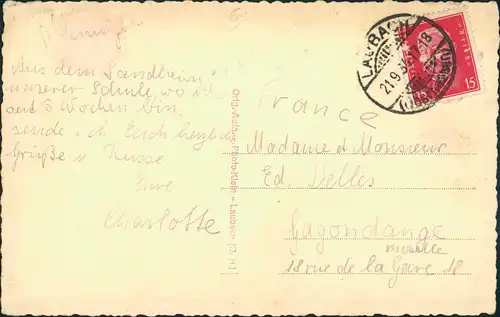 Aus dem Landheim
unserer Schule, wo ich
seit 3 Wochen bin
sende ich Euch herzliche
Grüße u Küsse
Eure
Charlotte
Orig.-Aufn. Photo-Klein - Laubach
LAUBACH
21.9.
15
France
Madame et Monsieur
Ed. Delles
Gagondange
moselle
18 rue de la Gare 18